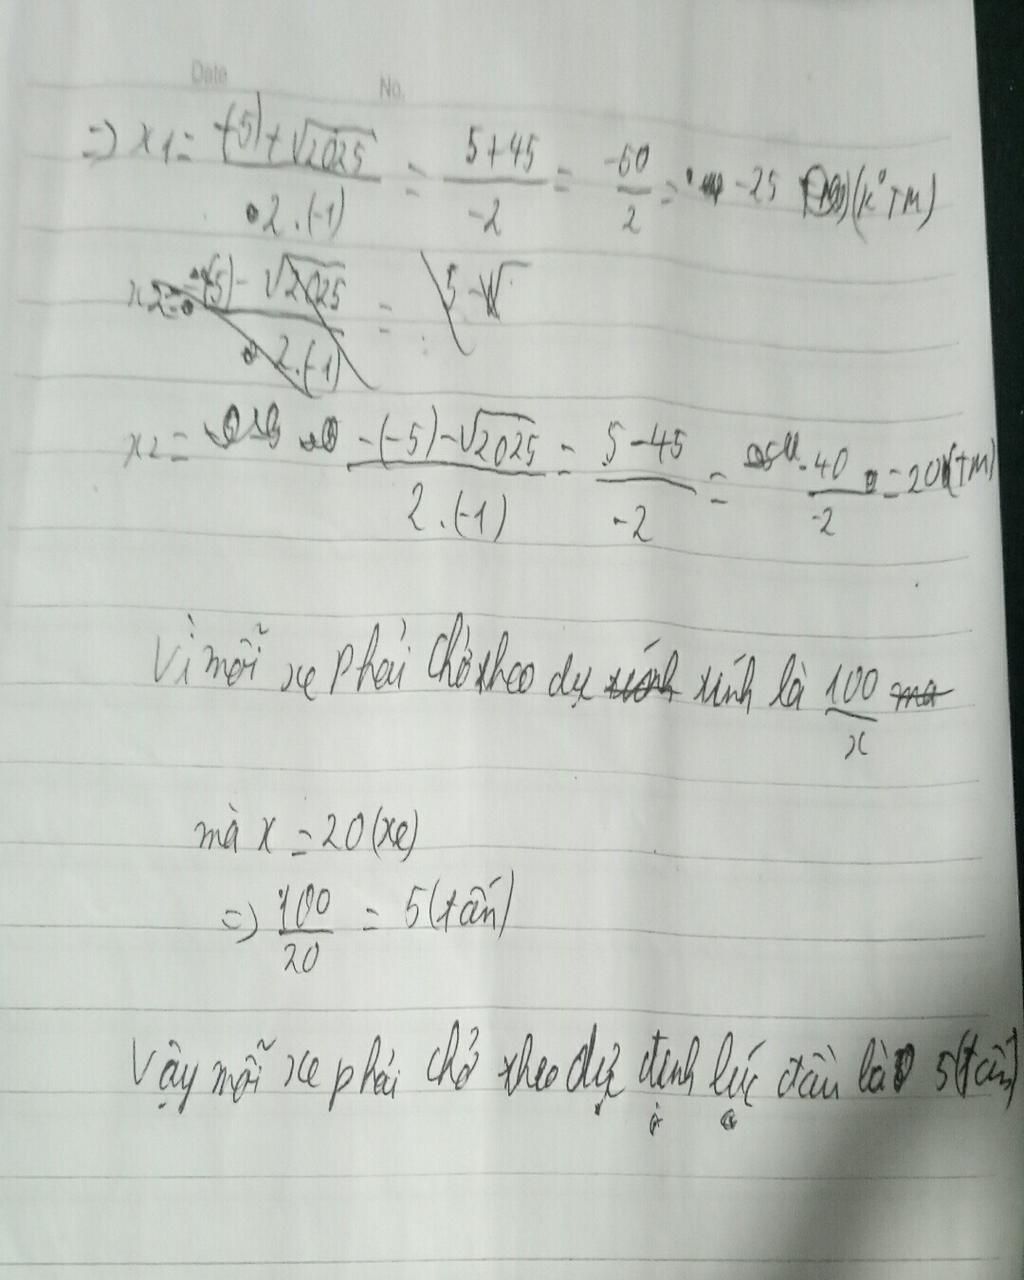 Date No.
=> x1 = -(-5)+√2025 / 2.(-1) = 5+45 / -2 = -50 / 2 = -25 (k° TM)
x2 = -(-5)-√2025 / 2.(-1) = 5-
x2 = -(-5)-√2025 / 2.(-1) = 5-45 / -2 = -40 / -2 = 20 (TM)
Vì mỗi xe phải chở theo dự tính là 100 / x
mà x = 20 (xe)
=> 100 / 20 = 5 (tấn)
Vậy mỗi xe phải chở theo dự định lúc đầu là 5 (tấn)